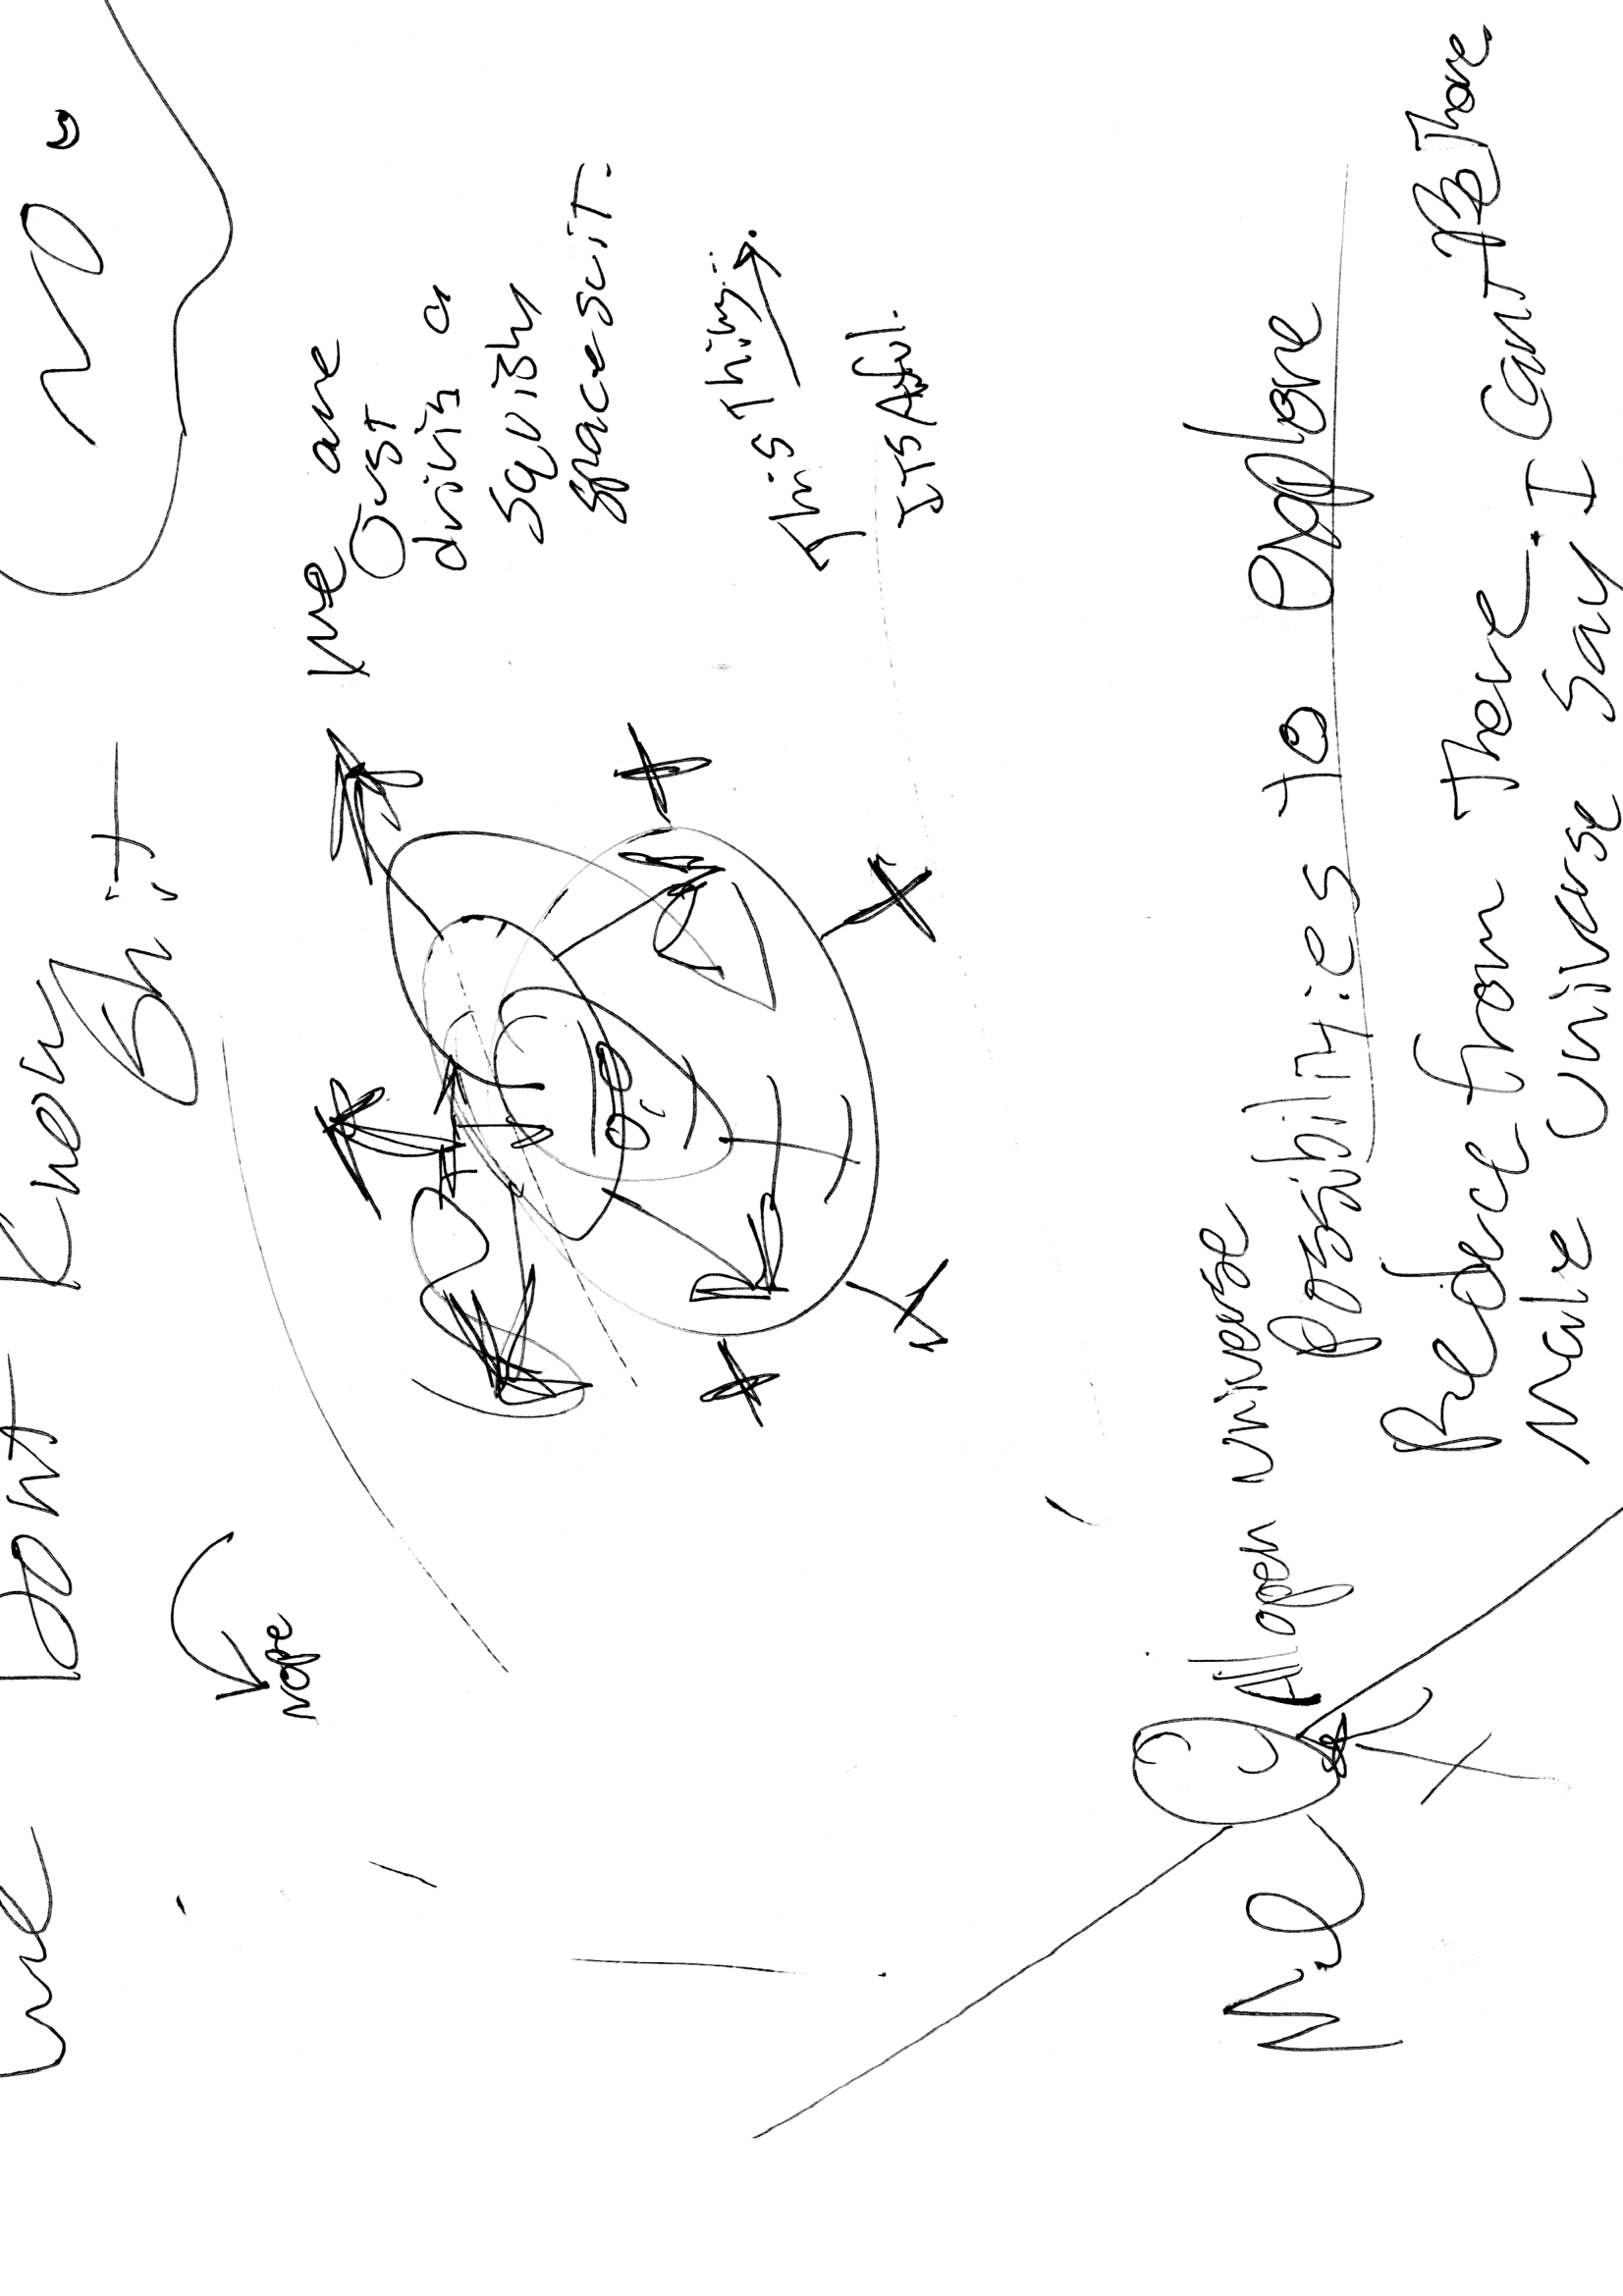 no
We Dont Know
Shit
nope
We are
Just
drivin a
squishy
spacesuit.
This Thing...
ITS Awful.
All open universe
Possibilities to explore
Me
Reduce from There. I Cant B There
Make universe Say I